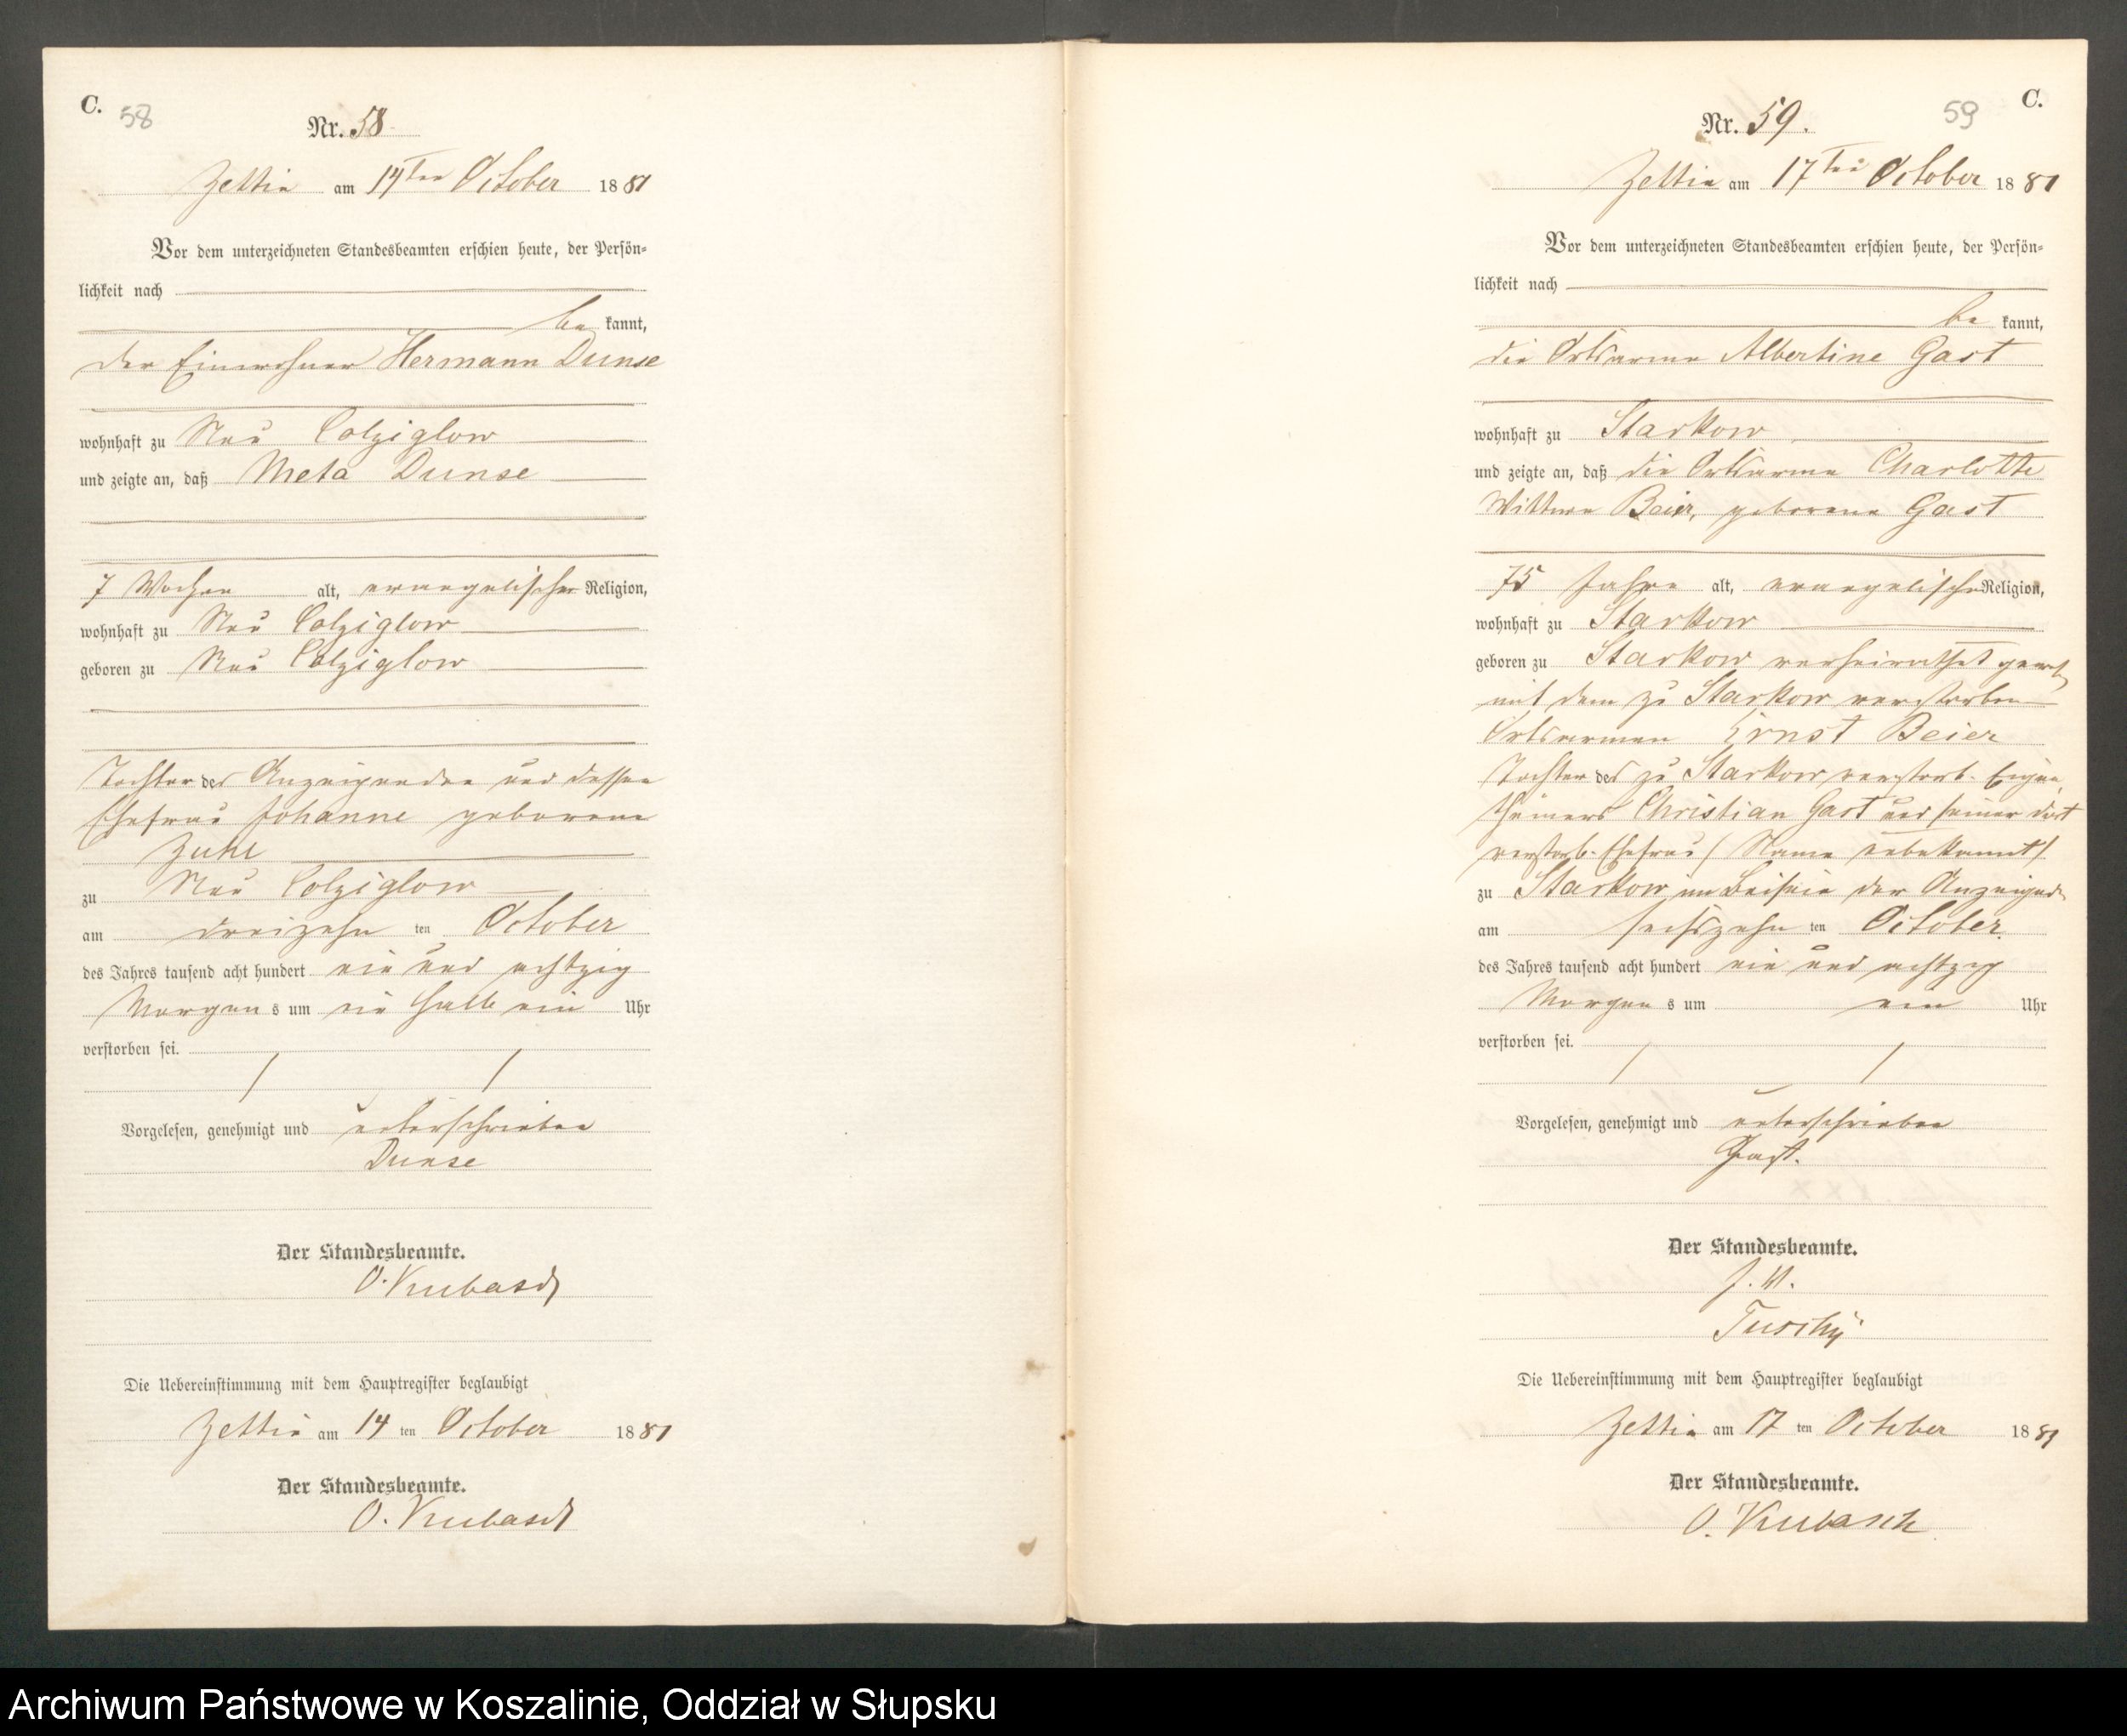 C.
58
Nr. 58
Zettin am 14ten October 1881
Vor dem unterzeichneten Standesbeamten erschien heute, der Persön-
lichkeit nach
be kannt,
der Einwohner Hermann Dunse
wohnhaft zu Neu Colziglow
und zeigte an, daß Meta Dunse
7 Wochen alt, evangelischer Religion,
wohnhaft zu Neu Colziglow
geboren zu Neu Colziglow
Tochter des Anzeigenden und dessen
Ehefrau Johanne geborene
Zuhl
zu Neu Colziglow
am dreizehn ten October
des Jahres tausend acht hundert ein und achtzig
Morgens um ein halb ein Uhr
verstorben sei.
Vorgelesen, genehmigt und unterschrieben
Dunse
Der Standesbeamte.
O. Kubasch
Die Uebereinstimmung mit dem Hauptregister beglaubigt
Zettin am 14 ten October 1881
Der Standesbeamte.
O. Kubasch
C.
59
Nr. 59.
Zettin am 17ten October 1881
Vor dem unterzeichneten Standesbeamten erschien heute, der Persön-
lichkeit nach
be kannt,
die Ortsarme Albertine Gast
wohnhaft zu Starkow
und zeigte an, daß die Ortsarme Charlotte
Wittwe Beier, geborene Gast
75 Jahre alt, evangelischer Religion,
wohnhaft zu Starkow
geboren zu Starkow verheirathet gewes.
mit dem zu Starkow verstorben
Ortsarmen Ernst Beier
Tochter des zu Starkow verstorb. Eigen
thümers Christian Gast und seiner dort
verstorb. Ehefrau / Name unbekannt /
zu Starkow im Beisein der Anzeigend.
am sechszehn ten October
des Jahres tausend acht hundert ein und achtzig
Morgens um ein Uhr
verstorben sei.
Vorgelesen, genehmigt und unterschrieben
Gast.
Der Standesbeamte.
J. V.
Tuschy
Die Uebereinstimmung mit dem Hauptregister beglaubigt
Zettin am 17 ten October 1881
Der Standesbeamte.
O. Kubasch
Archiwum Państwowe w Koszalinie, Oddział w Słupsku